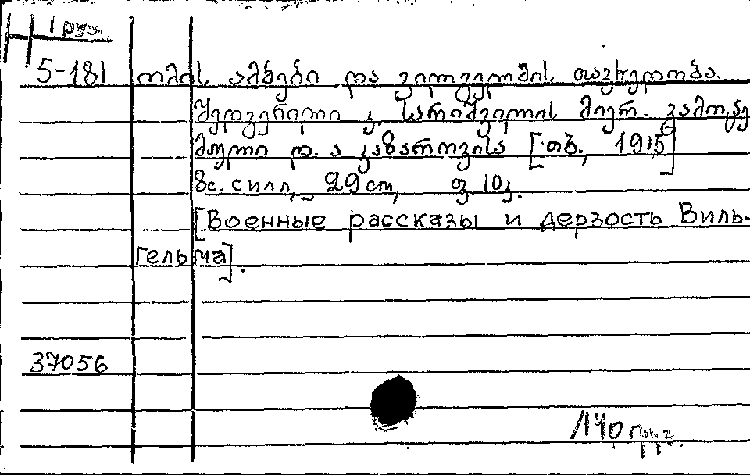 1 груз.
5-181 ომის ამბები და ვილჰელმის თავხედობა.
შედგენილი კ. სარიშვილის მიერ. გამოცე
მული დ. ა. კაზაროვისა [თბ., 1915]
8с. силл, 29 cm, ფ. 10 კ.
[Военные рассказы и дерзость Виль-
гельма].
37056